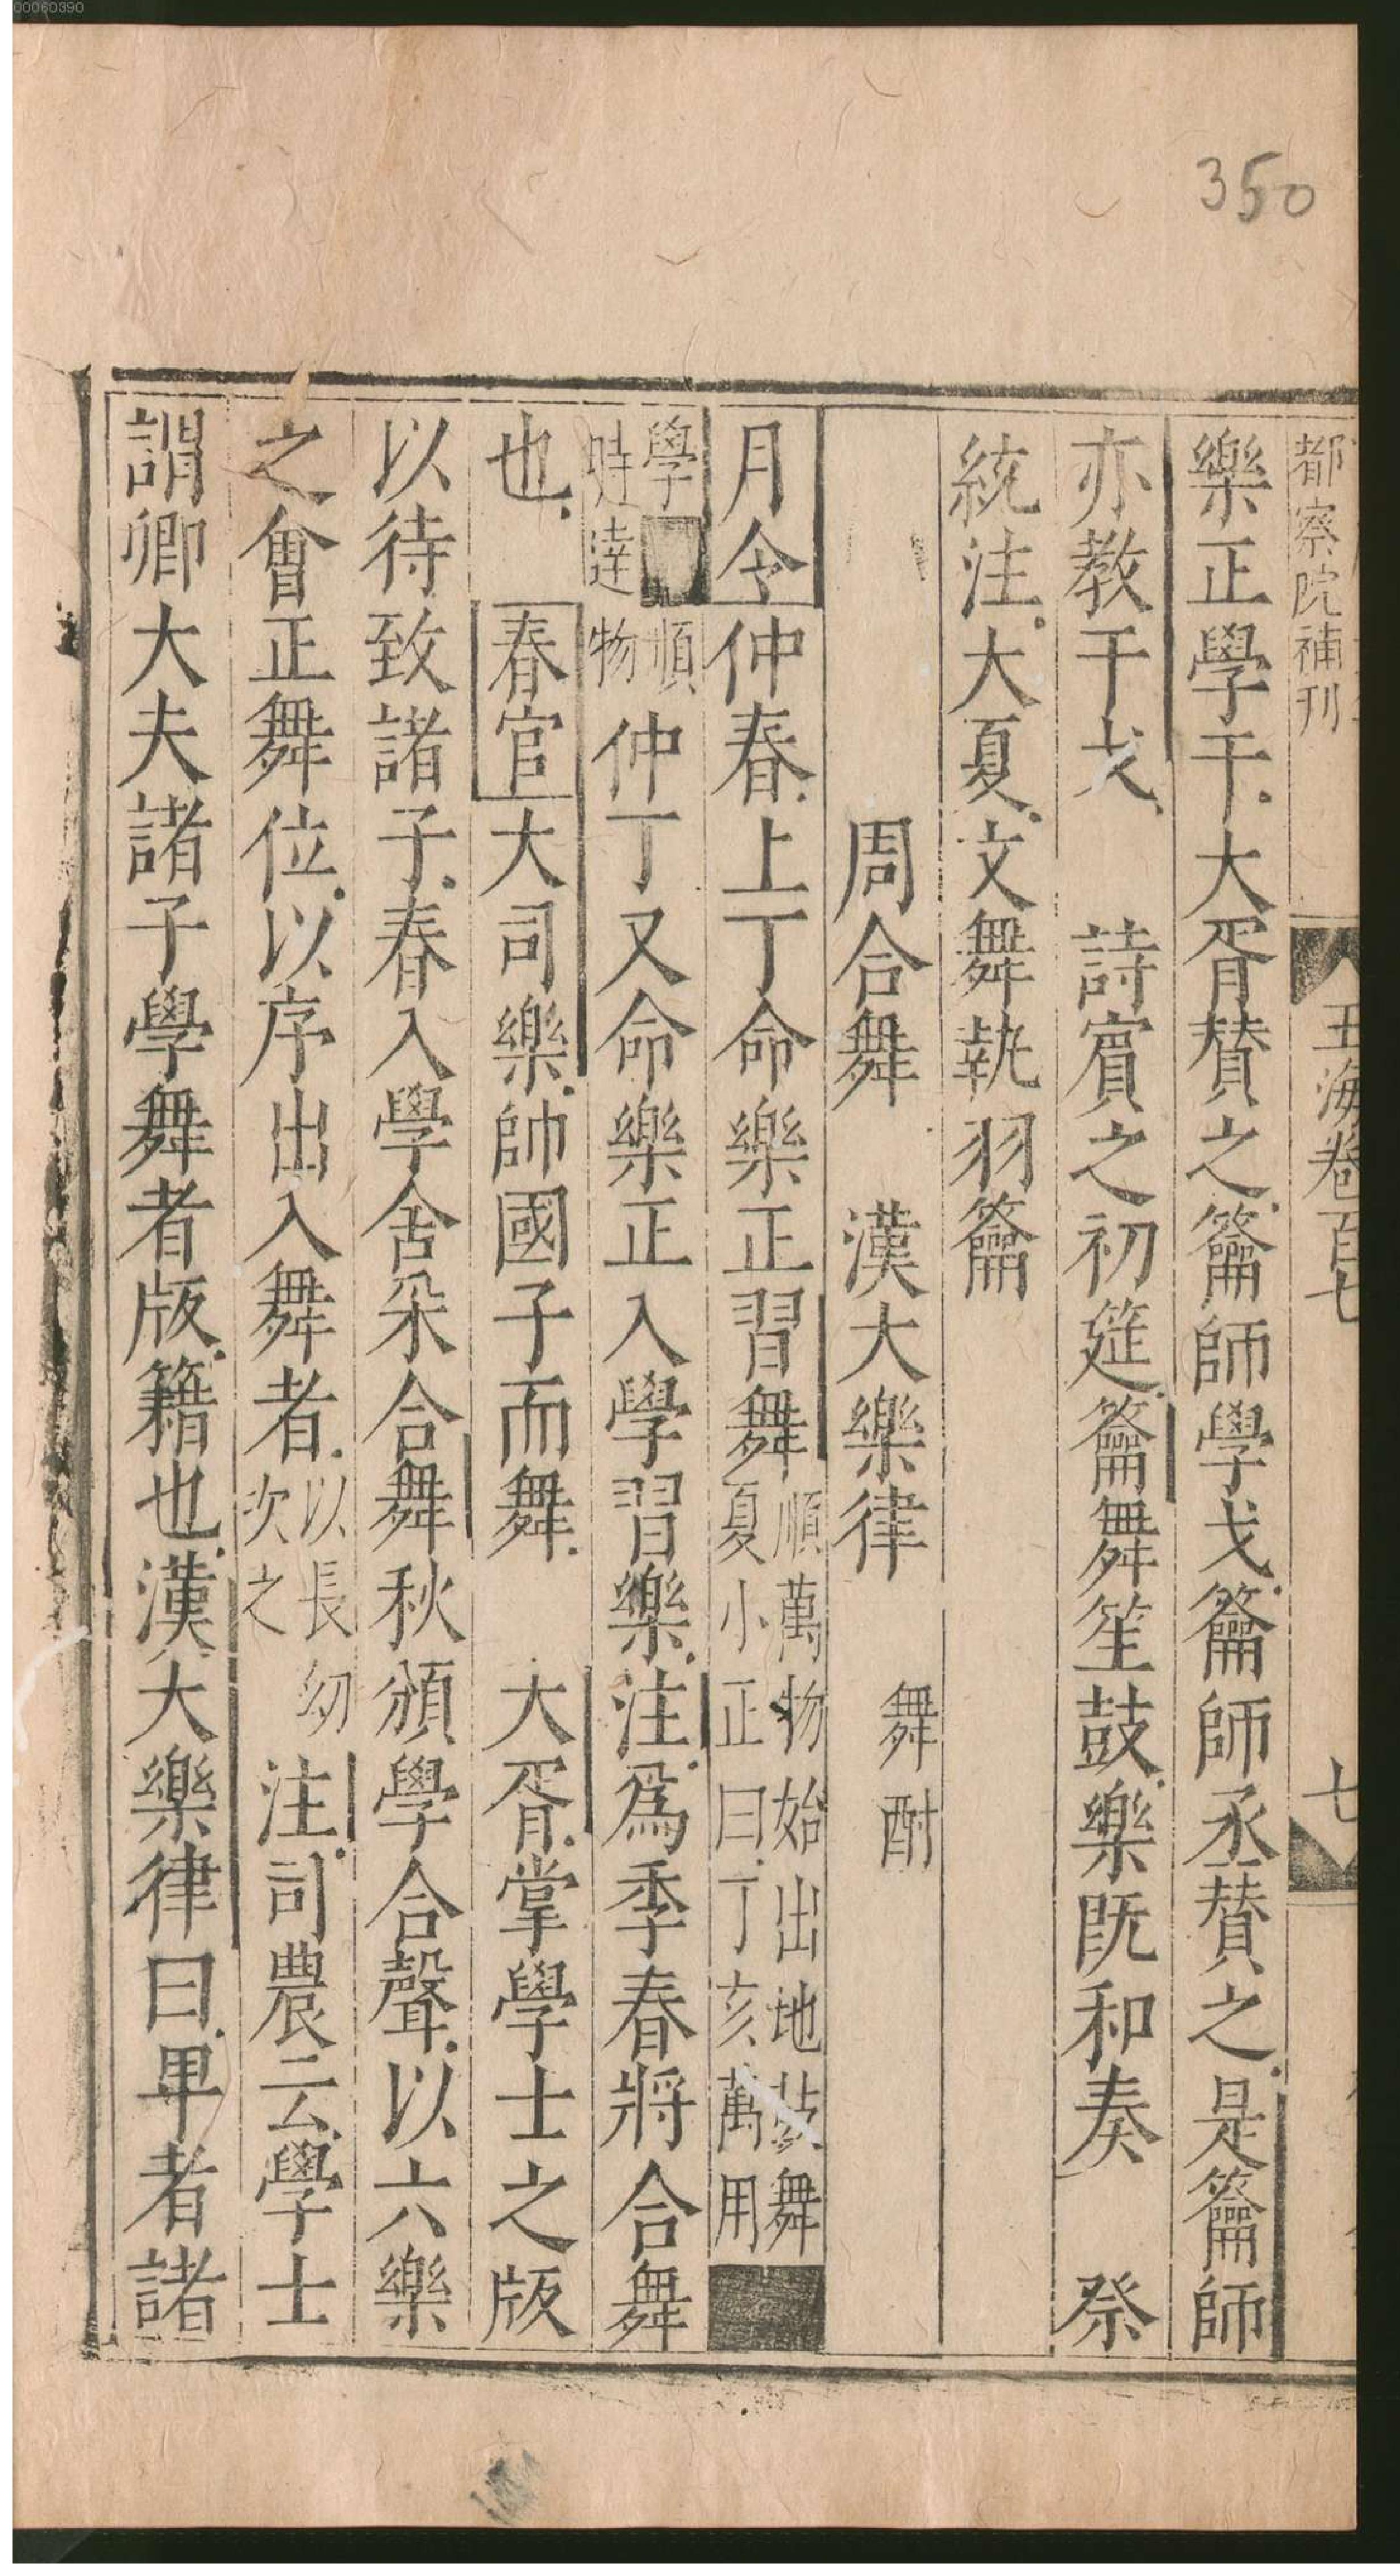 00060390
350
都察院補刊 玉海卷百七 七
樂正學干大胥賛之籥師學戈籥師丞賛之是籥師
亦教干戈 詩賓之初筵籥舞笙鼓樂既和奏 祭
統注大夏文舞執羽籥
周合舞 漢大樂律 舞酎
月令仲春上丁命樂正習舞順萬物始出地鼓舞
夏小正曰丁亥萬用
學 順
時達物仲丁又命樂正入學習樂注爲季春將合舞
也 春官大司樂帥國子而舞 大胥掌學士之版
以待致諸子春入學舍采合舞秋頒學合聲以六樂
之會正舞位以序出入舞者以長幼
次之注司農云學士
謂卿大夫諸子學舞者版籍也漢大樂律曰卑者諸